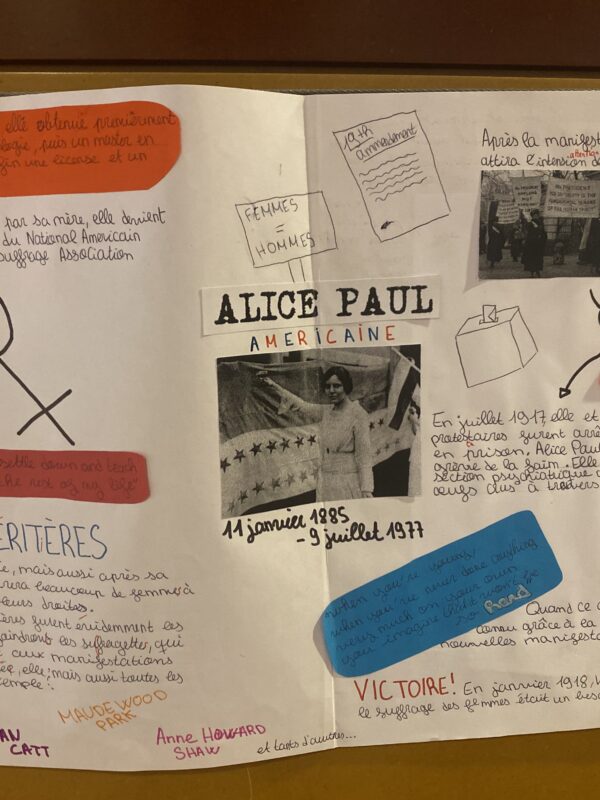 elle obtenue premièrement
logie, puis un master en
gin une license et un
par sa mère, elle devient
du National Americain
suffrage Association
settle down and teach
the rest of my life"
ÉRITÈRES
ie, mais aussi après sa
rera beaucoup de femme à
leurs droites.
ères furent évidemment les
aindront les suffragettes, qui
t aux manifestations
elle, mais aussi toutes les
emple :
AN
CATT
MAUDE WOOD
PARK
Anne HOWARD
SHAW
et tants d'autres...
19th
ammendment
FEMMES
=
HOMMES
ALICE PAUL
AMERICAINE
11 janvier 1885
- 9 juillet 1977
Après la manifest
attention
attira l'intension de
En juillet 1917, elle et
protestaires furent arrê
en prison. Alice Paul
grève de la faim. Elle
section psychiatrique
oeufs clus à travers
when you're young
when you've never done anything
very much on your own
you imagine that it won't be
so hard
Quand ce
connu grâce à la
nouvelles manifesta
VICTOIRE! En janvier 1918, W
le suffrage des femmes était un beso